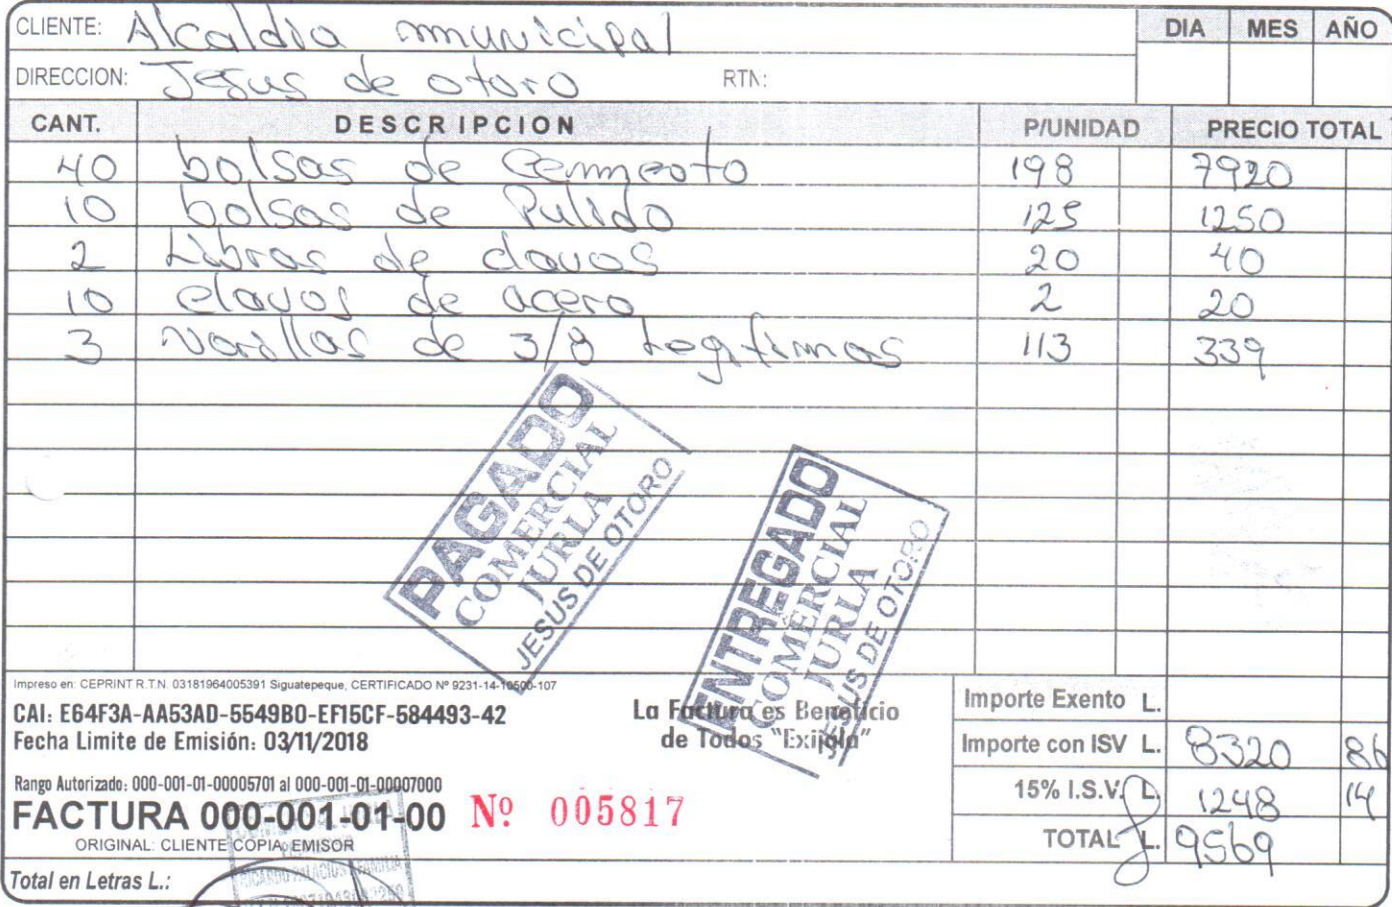 CLIENTE: Alcaldia municipal
DIA MES AÑO
DIRECCION: Jesus de otoro RTN:
CANT. DESCRIPCION P/UNIDAD PRECIO TOTAL
40 bolsas de Cemmento 198 7920
10 bolsas de Pulido 125 1250
2 Libras de clavos 20 40
10 clavos de acero 2 20
3 Varillas de 3/8 Legitimas 113 339
PAGADO
COMERCIAL
JURLA
JESUS DE OTORO
ENTREGADO
COMERCIAL
JURLA
JESUS DE OTORO
Impreso en: CEPRINT R.T.N. 03181964005391 Siguatepeque, CERTIFICADO Nº 9231-14-10500-107
CAI: E64F3A-AA53AD-5549B0-EF15CF-584493-42
Fecha Limite de Emisión: 03/11/2018
La Factura es Beneficio
de Todos "Exijala"
Rango Autorizado: 000-001-01-00005701 al 000-001-01-00007000
FACTURA 000-001-01-00 Nº 005817
ORIGINAL: CLIENTE COPIA: EMISOR
Importe Exento L.
Importe con ISV L. 8320 86
15% I.S.V. L. 1248 14
TOTAL L. 9569
Total en Letras L.: